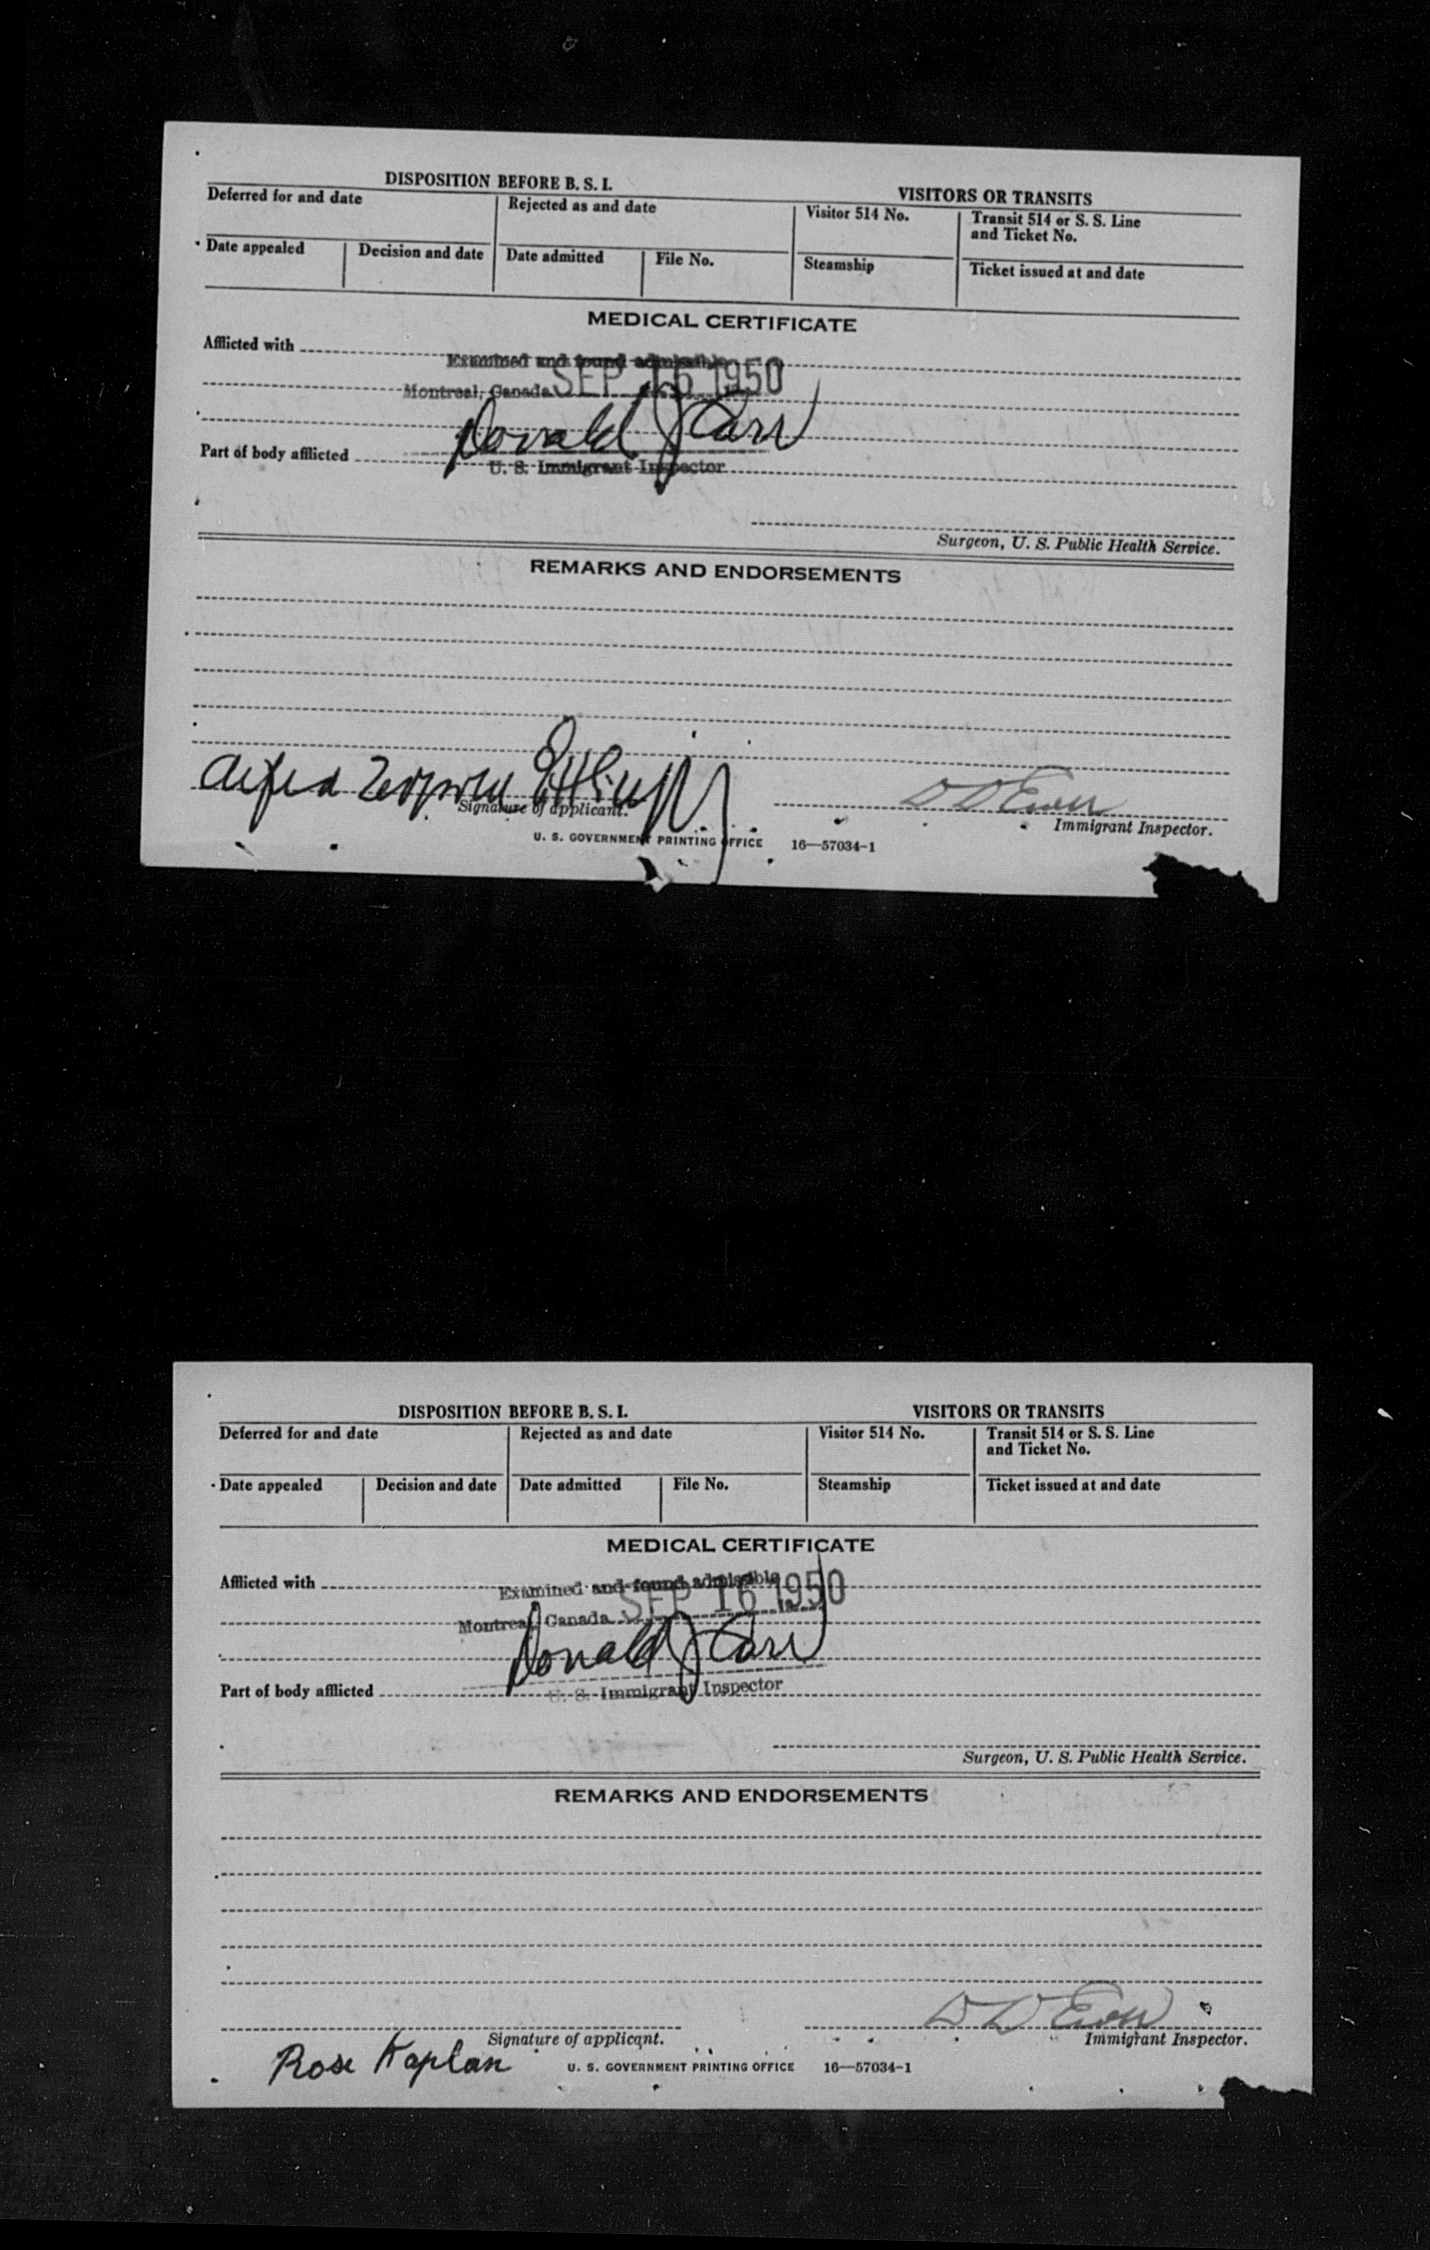 DISPOSITION BEFORE B. S. I.
VISITORS OR TRANSITS
Deferred for and date
Rejected as and date
Visitor 514 No.
Transit 514 or S. S. Line
and Ticket No.
Date appealed
Decision and date
Date admitted
File No.
Steamship
Ticket issued at and date
MEDICAL CERTIFICATE
Afflicted with
Examined and found admissible
Montreal, Canada SEP 16 1950
Donald J Carr
Part of body afflicted
U. S. Immigrant Inspector
Surgeon, U. S. Public Health Service.
REMARKS AND ENDORSEMENTS
Alfred
Signature of applicant.
Immigrant Inspector.
U. S. GOVERNMENT PRINTING OFFICE 16—57034-1
DISPOSITION BEFORE B. S. I.
VISITORS OR TRANSITS
Deferred for and date
Rejected as and date
Visitor 514 No.
Transit 514 or S. S. Line
and Ticket No.
Date appealed
Decision and date
Date admitted
File No.
Steamship
Ticket issued at and date
MEDICAL CERTIFICATE
Afflicted with
Examined and found admissible
Montreal, Canada SEP 16 1950
Donald J Carr
Part of body afflicted
U. S. Immigrant Inspector
Surgeon, U. S. Public Health Service.
REMARKS AND ENDORSEMENTS
Signature of applicant.
Immigrant Inspector.
Rose Kaplan
U. S. GOVERNMENT PRINTING OFFICE 16—57034-1